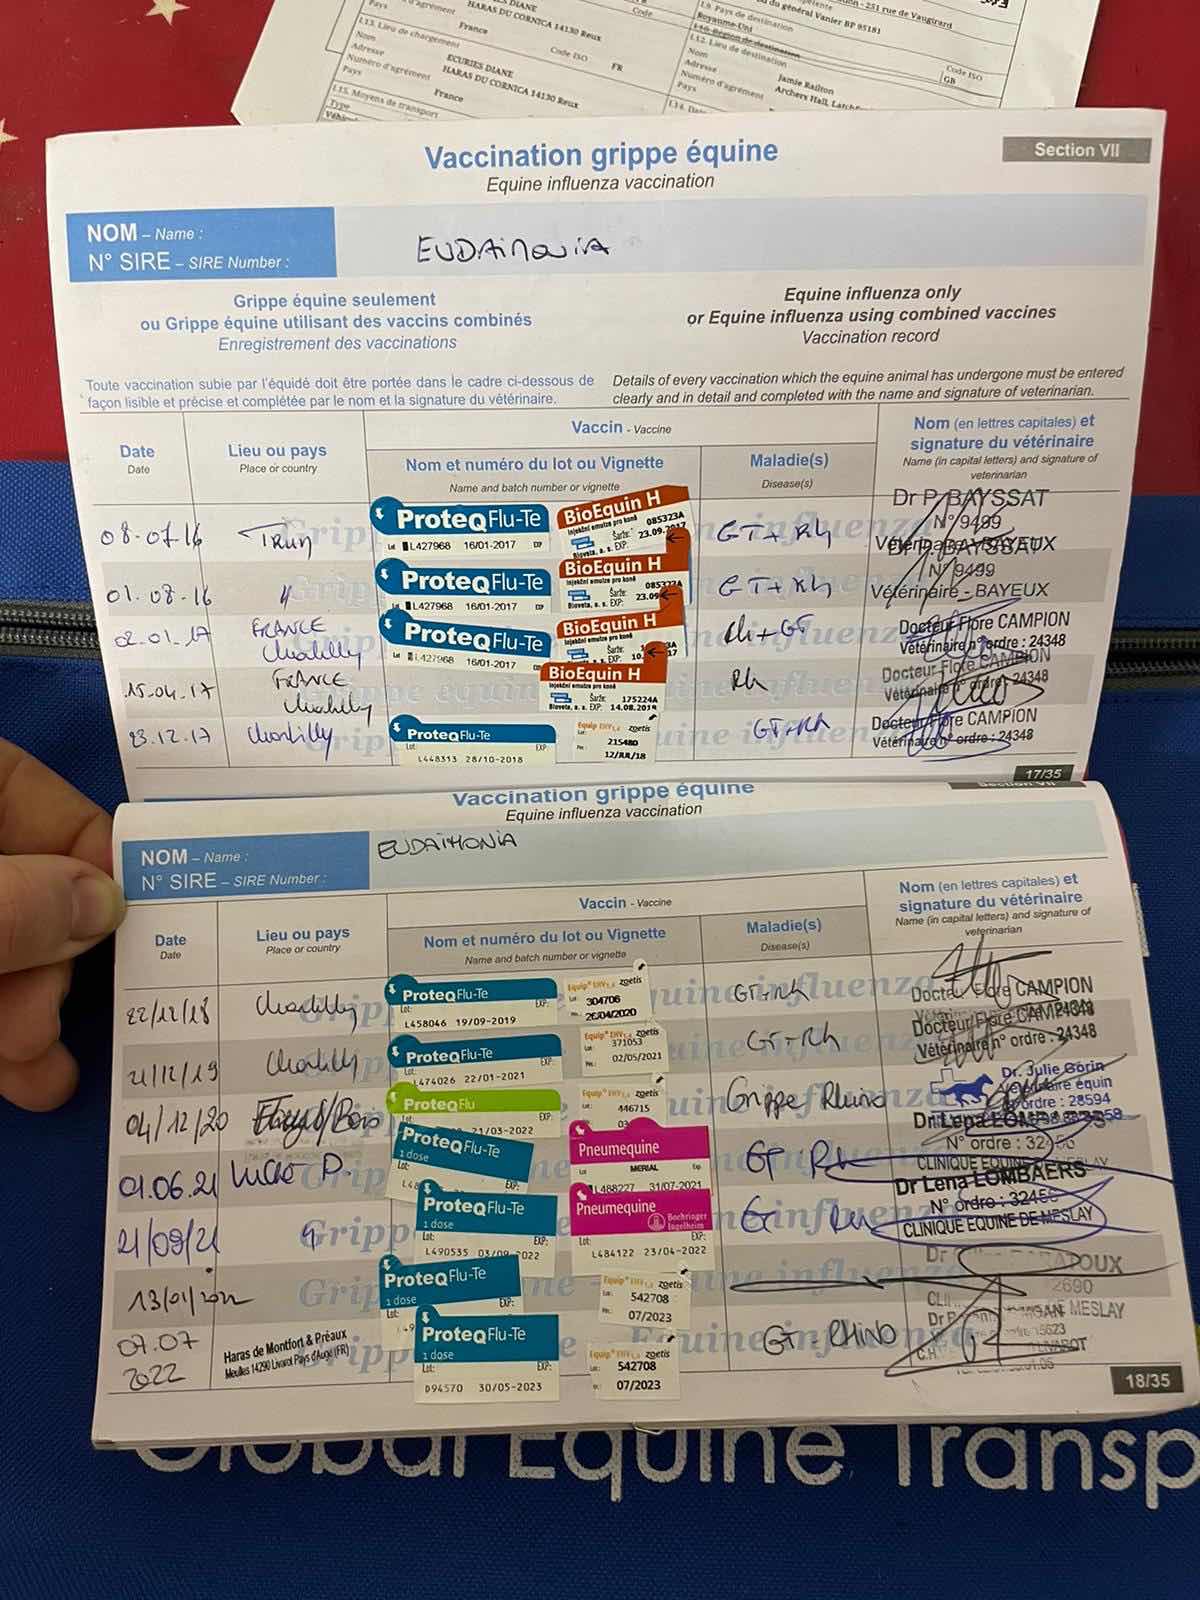 - 251 rue de Vaugirard
du général Vanier BP 95181
I.9. Pays de destination
Royaume-Uni
I.10. Région de destination
I.12. Lieu de destination
Nom
Adresse
Numéro d'agrément
Pays
Code ISO
GB
Jamie Railton
Archers Hall,
HARAS DU CORNICA 14130 Reux
France
Code
I.13. Lieu de chargement
Nom
Adresse
Numéro d'agrément
Pays
Code ISO
FR
ECURIES DIANE
HARAS DU CORNICA 14130 Reux
France
I.15. Moyens de transport
Type
Vaccination grippe équine
Section VII
Equine influenza vaccination
NOM – Name :
EUDAIMONIA
N° SIRE – SIRE Number :
Grippe équine seulement
ou Grippe équine utilisant des vaccins combinés
Enregistrement des vaccinations
Equine influenza only
or Equine influenza using combined vaccines
Vaccination record
Toute vaccination subie par l'équidé doit être portée dans le cadre ci-dessous de
façon lisible et précise et complétée par le nom et la signature du vétérinaire.
Details of every vaccination which the equine animal has undergone must be entered
clearly and in detail and completed with the name and signature of veterinarian.
Date
Date
Lieu ou pays
Place or country
Vaccin - Vaccine
Nom et numéro du lot ou Vignette
Name and batch number or vignette
Maladie(s)
Disease(s)
Nom (en lettres capitales) et
signature du vétérinaire
Name (in capital letters) and signature of
veterinarian
08-07-16
ProteqFlu-Te
Lot L427968 16/01/2017 EXP
BioEquin H
Injekční emulze pro koně
085323A
Šarže:
23.09.2017
Bioveta, a. s. EXP:
GT+Rh
Dr P. BAYSSAT
N° 9499
Vétérinaire - BAYEUX
01.08.16
"
ProteqFlu-Te
L427968 16/01/2017 EXP
BioEquin H
Injekční emulze pro koně
Šarže:
23.09
Bioveta, a. s. EXP:
GT+Rh
N° 9499
Vétérinaire - BAYEUX
02.01.17
FRANCE
Chantilly
ProteqFlu-Te
Lot L427968 16/01/2017 EXP
BioEquin H
Injekční emulze pro koně
Šarže:
Bioveta, a. s. EXP:
Rh+GT
Docteur Flore CAMPION
Vétérinaire n° ordre : 24348
15.04.17
FRANCE
Chantilly
BioEquin H
Injekční emulze pro koně
Šarže: 175224A
Bioveta, a. s. EXP: 14.08.2018
Rh
Docteur Flore CAMPION
Vétérinaire n° ordre : 24348
23.12.17
Chantilly
ProteqFlu-Te
Lot: EXP:
L448313 28/10/2018
Equip EHV1,4 zoetis
215480
12/JUL/18
GT+Rh
Docteur Flore CAMPION
Vétérinaire n° ordre : 24348
17/35
Vaccination grippe équine
Section VII
Equine influenza vaccination
NOM – Name :
EUDAIMONIA
N° SIRE – SIRE Number :
Date
Date
Lieu ou pays
Place or country
Vaccin - Vaccine
Nom et numéro du lot ou Vignette
Name and batch number or vignette
Maladie(s)
Disease(s)
Nom (en lettres capitales) et
signature du vétérinaire
Name (in capital letters) and signature of
veterinarian
22/12/18
Chantilly
ProteqFlu-Te
Lot: EXP:
L458046 19/09-2019
Equip® EHV1,4 zoetis
304706
26/04/2020
GT+Rh
Docteur Flore CAMPION
24348
21/12/19
Chantilly
ProteqFlu-Te
Lot: EXP:
L474026 22/01-2021
Equip® EHV1,4 zoetis
371053
02/05/2021
GT-Rh
Docteur Flore CAMPION
Vétérinaire n° ordre : 24348
04/12/20
ProteqFlu
EXP:
21/03-2022
Equip® EHV1,4 zoetis
446715
Grippe Rhino
Dr. Julie Gorin
Vétérinaire équin
N° ordre : 28594
01.06.21
ProteqFlu-Te
1 dose
Lot: EXP:
Pneumequine
Lot MERIAL Exp.
L488227 31/07/2021
GT Rh
Dr Lena LOMBAERS
N° ordre : 32450
CLINIQUE EQUINE DE MESLAY
21/09/21
ProteqFlu-Te
1 dose
Lot: EXP:
L490535 03/09-2022
Pneumequine
Boehringer
Ingelheim
Lot: EXP:
L484122 23/04-2022
Dr Lena LOMBAERS
N° ordre : 32450
CLINIQUE EQUINE DE MESLAY
13/01/2022
ProteqFlu-Te
1 dose
Lot: EXP:
Equip® EHV1,4 zoetis
542708
07/2023
Dr
2690
MESLAY
07.07
2022
Haras de Montfort & Préaux
Meulles 14290 Livarot Pays d'Auge (FR)
ProteqFlu-Te
1 dose
Lot: EXP:
D94570 30/05-2023
Equip® EHV1,4 zoetis
542708
07/2023
GT - RHINO
18/35
Global Equine Transp